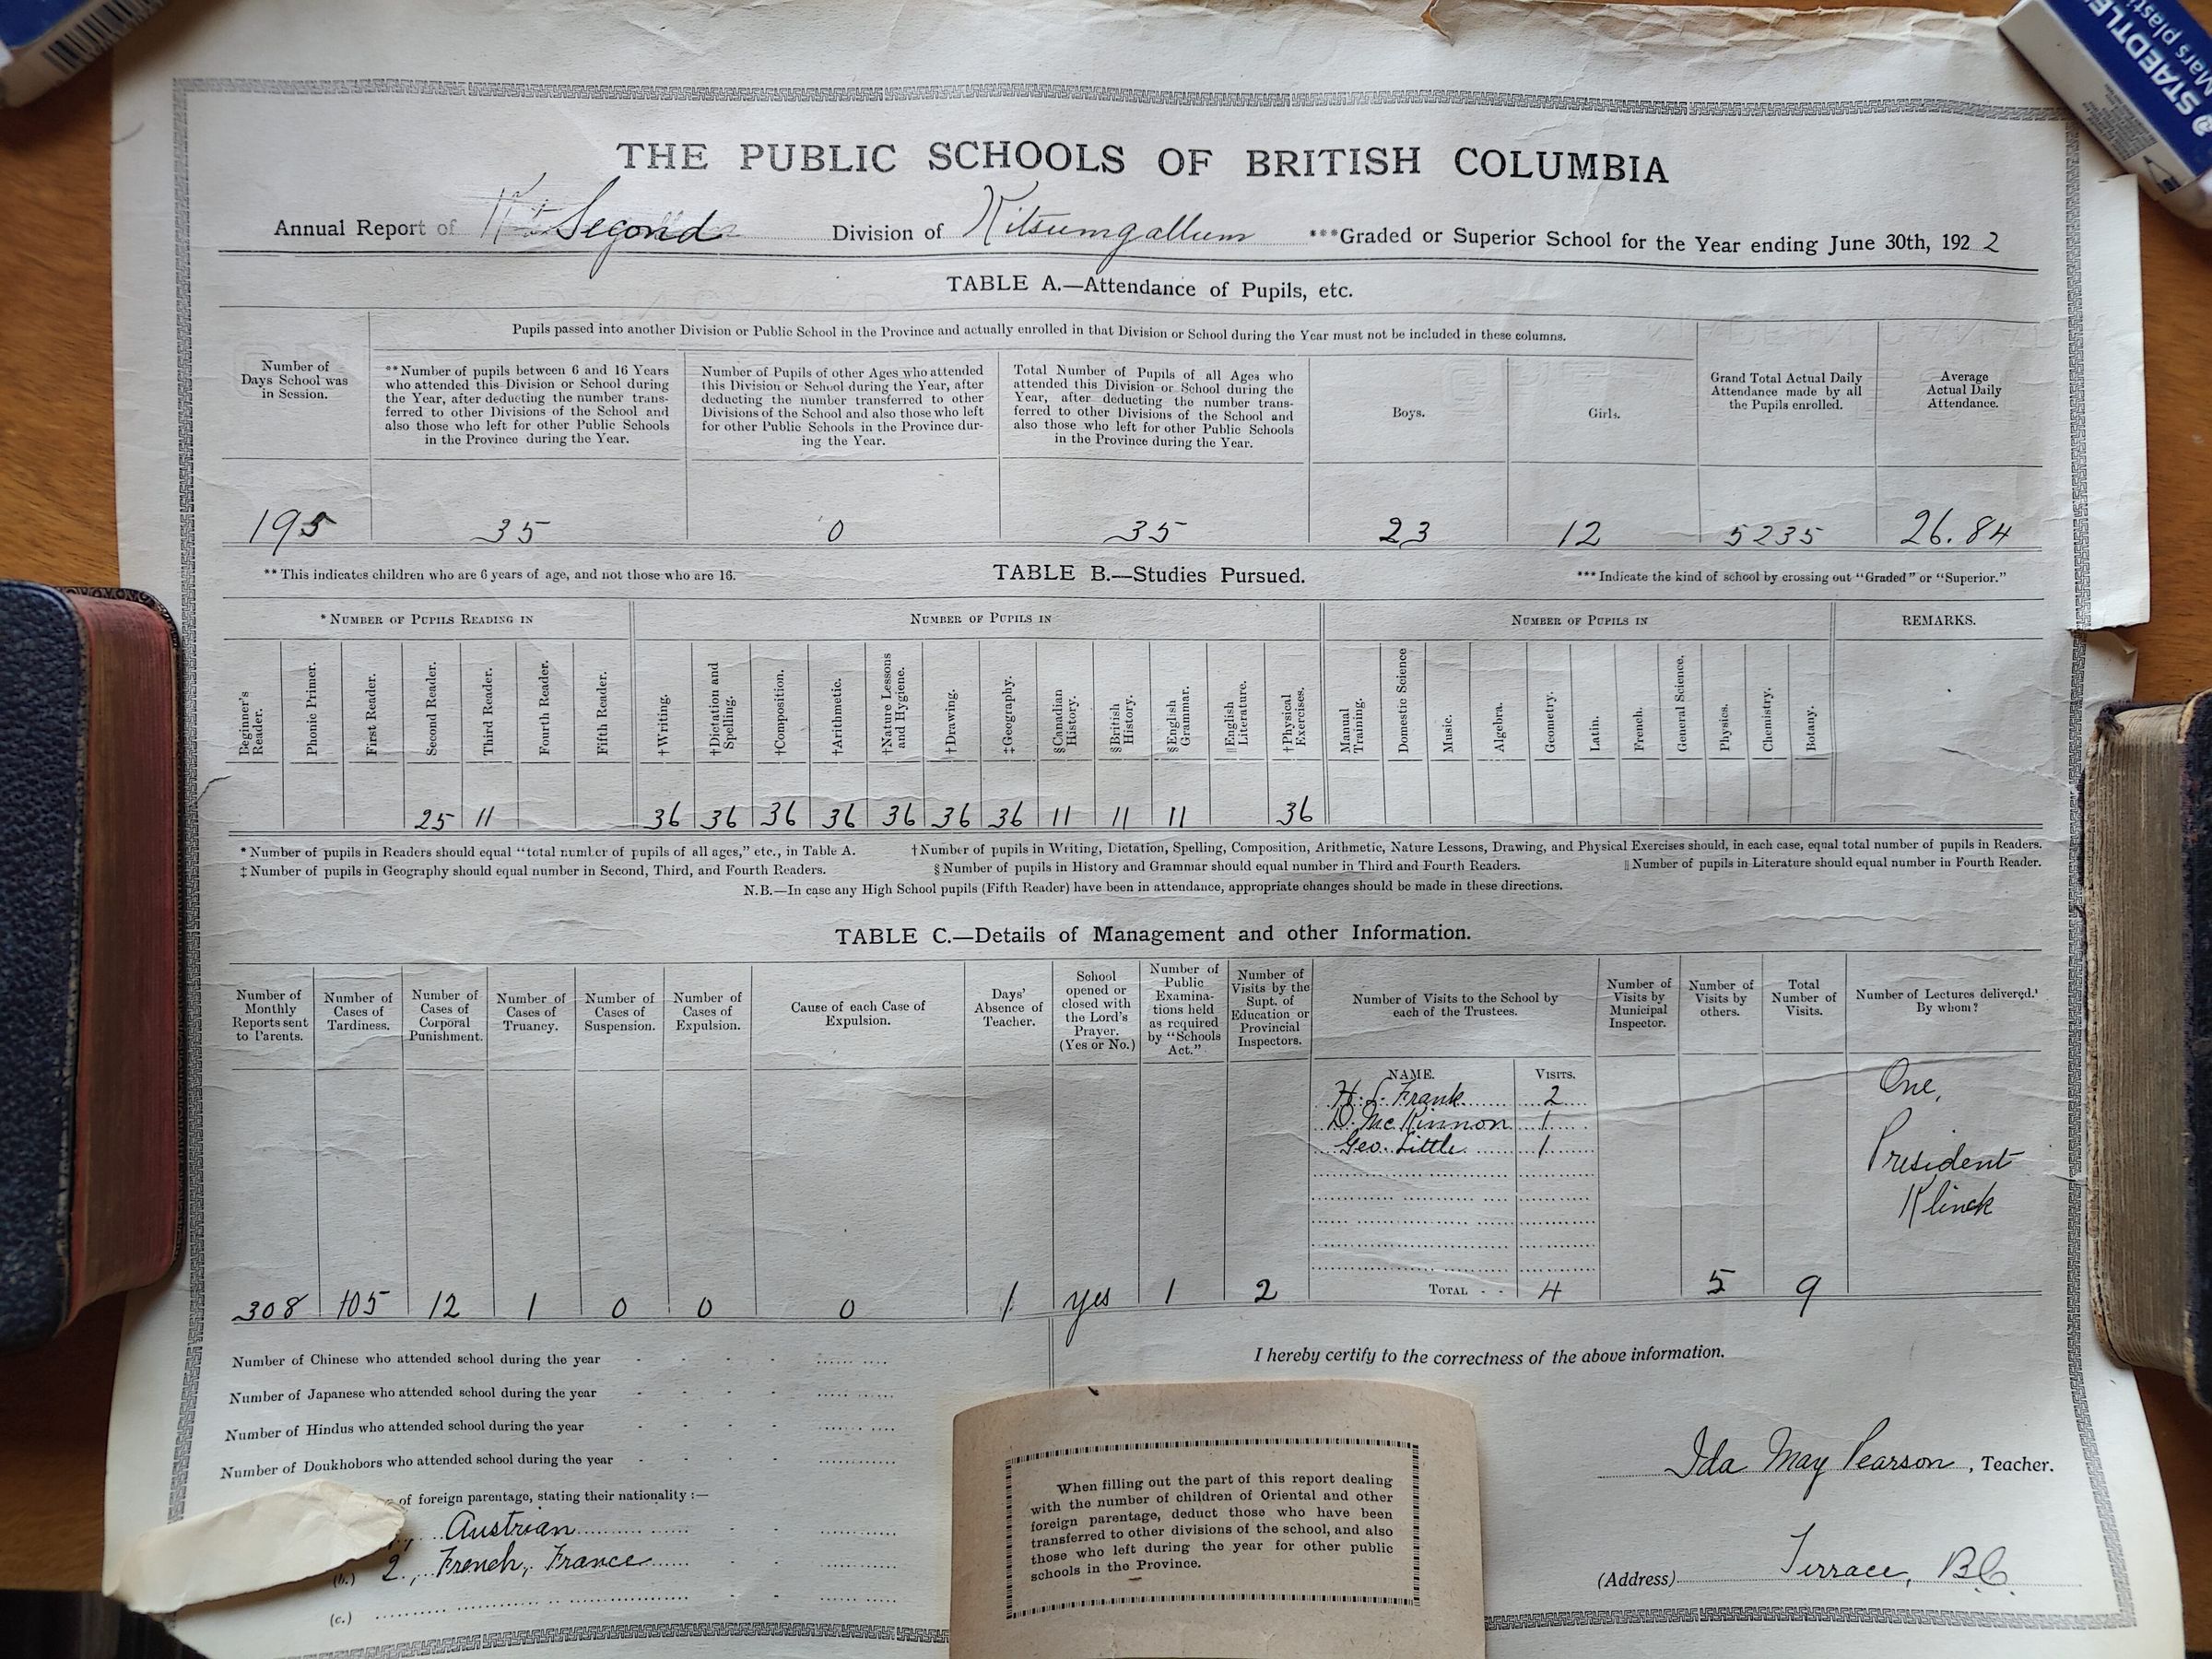 STAEDTLE
Mars plasti
THE PUBLIC SCHOOLS OF BRITISH COLUMBIA
Annual Report of Second Division of Kitsumgallum ***Graded or Superior School for the Year ending June 30th, 1922
TABLE A.—Attendance of Pupils, etc.
Pupils passed into another Division or Public School in the Province and actually enrolled in that Division or School during the Year must not be included in these columns.
Number of
Days School was
in Session.
**Number of pupils between 6 and 16 Years
who attended this Division or School during
the Year, after deducting the number trans-
ferred to other Divisions of the School and
also those who left for other Public Schools
in the Province during the Year.
Number of Pupils of other Ages who attended
this Division or School during the Year, after
deducting the number transferred to other
Divisions of the School and also those who left
for other Public Schools in the Province dur-
ing the Year.
Total Number of Pupils of all Ages who
attended this Division or School during the
Year, after deducting the number trans-
ferred to other Divisions of the School and
also those who left for other Public Schools
in the Province during the Year.
Boys.
Girls.
Grand Total Actual Daily
Attendance made by all
the Pupils enrolled.
Average
Actual Daily
Attendance.
195 35 0 35 23 12 5235 26.84
**This indicates children who are 6 years of age, and not those who are 16.
TABLE B.—Studies Pursued.
***Indicate the kind of school by crossing out "Graded" or "Superior."
*NUMBER OF PUPILS READING IN
NUMBER OF PUPILS IN
NUMBER OF PUPILS IN
REMARKS.
Beginner's
Reader.
Phonic Primer.
First Reader.
Second Reader.
Third Reader.
Fourth Reader.
Fifth Reader.
†Writing.
†Dictation and
Spelling.
†Composition.
†Arithmetic.
†Nature Lessons
and Hygiene.
†Drawing.
‡Geography.
§Canadian
History.
§British
History.
§English
Grammar.
‖English
Literature.
†Physical
Exercises.
Manual
Training.
Domestic Science
Music.
Algebra.
Geometry.
Latin.
French.
General Science.
Physics.
Chemistry.
Botany.
25 11 36 36 36 36 36 36 36 11 11 11 36
*Number of pupils in Readers should equal "total number of pupils of all ages," etc., in Table A.
†Number of pupils in Writing, Dictation, Spelling, Composition, Arithmetic, Nature Lessons, Drawing, and Physical Exercises should, in each case, equal total number of pupils in Readers.
‡Number of pupils in Geography should equal number in Second, Third, and Fourth Readers.
§Number of pupils in History and Grammar should equal number in Third and Fourth Readers.
‖Number of pupils in Literature should equal number in Fourth Reader.
N.B.—In case any High School pupils (Fifth Reader) have been in attendance, appropriate changes should be made in these directions.
TABLE C.—Details of Management and other Information.
Number of
Monthly
Reports sent
to Parents.
Number of
Cases of
Tardiness.
Number of
Cases of
Corporal
Punishment.
Number of
Cases of
Truancy.
Number of
Cases of
Suspension.
Number of
Cases of
Expulsion.
Cause of each Case of
Expulsion.
Days'
Absence of
Teacher.
School
opened or
closed with
the Lord's
Prayer.
(Yes or No.)
Number of
Public
Examina-
tions held
as required
by "Schools
Act."
Number of
Visits by the
Supt. of
Education or
Provincial
Inspectors.
Number of Visits to the School by
each of the Trustees.
Number of
Visits by
Municipal
Inspector.
Number of
Visits by
others.
Total
Number of
Visits.
Number of Lectures delivered.
By whom?
NAME. VISITS.
H. L. Frank 2
D. McKinnon 1
Geo. Little 1
One,
President
Klinck
308 105 12 1 0 0 0 1 yes 1 2 TOTAL - - 4 5 9
Number of Chinese who attended school during the year
Number of Japanese who attended school during the year
Number of Hindus who attended school during the year
Number of Doukhobors who attended school during the year
of foreign parentage, stating their nationality:—
Austrian
(b.) 2., French, France
(c.)
I hereby certify to the correctness of the above information.
Ida May Pearson, Teacher.
(Address) Terrace, B.C.
When filling out the part of this report dealing
with the number of children of Oriental and other
foreign parentage, deduct those who have been
transferred to other divisions of the school, and also
those who left during the year for other public
schools in the Province.